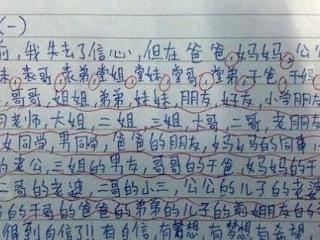 (一)
前,我失去了信心,但在爸爸,妈妈,公
妹,表哥,表弟,堂姐,堂妹,堂哥,堂弟,干爸,干妈
,哥哥,姐姐,弟弟,妹妹,朋友,好友,小学朋友
同老师,大姐,二姐,三姐,大哥,二哥,老朋友
女同学,男同学,爸爸的朋友,妈妈的同事,
的老公,三姐的男友,哥哥的干爸,妈妈的干
二哥的老婆,二哥的小三,公公的儿子的老婆
的干哥的爸爸的弟弟的儿子的前姐朋友的
得到自信了!!有自信,有梦想,有希望